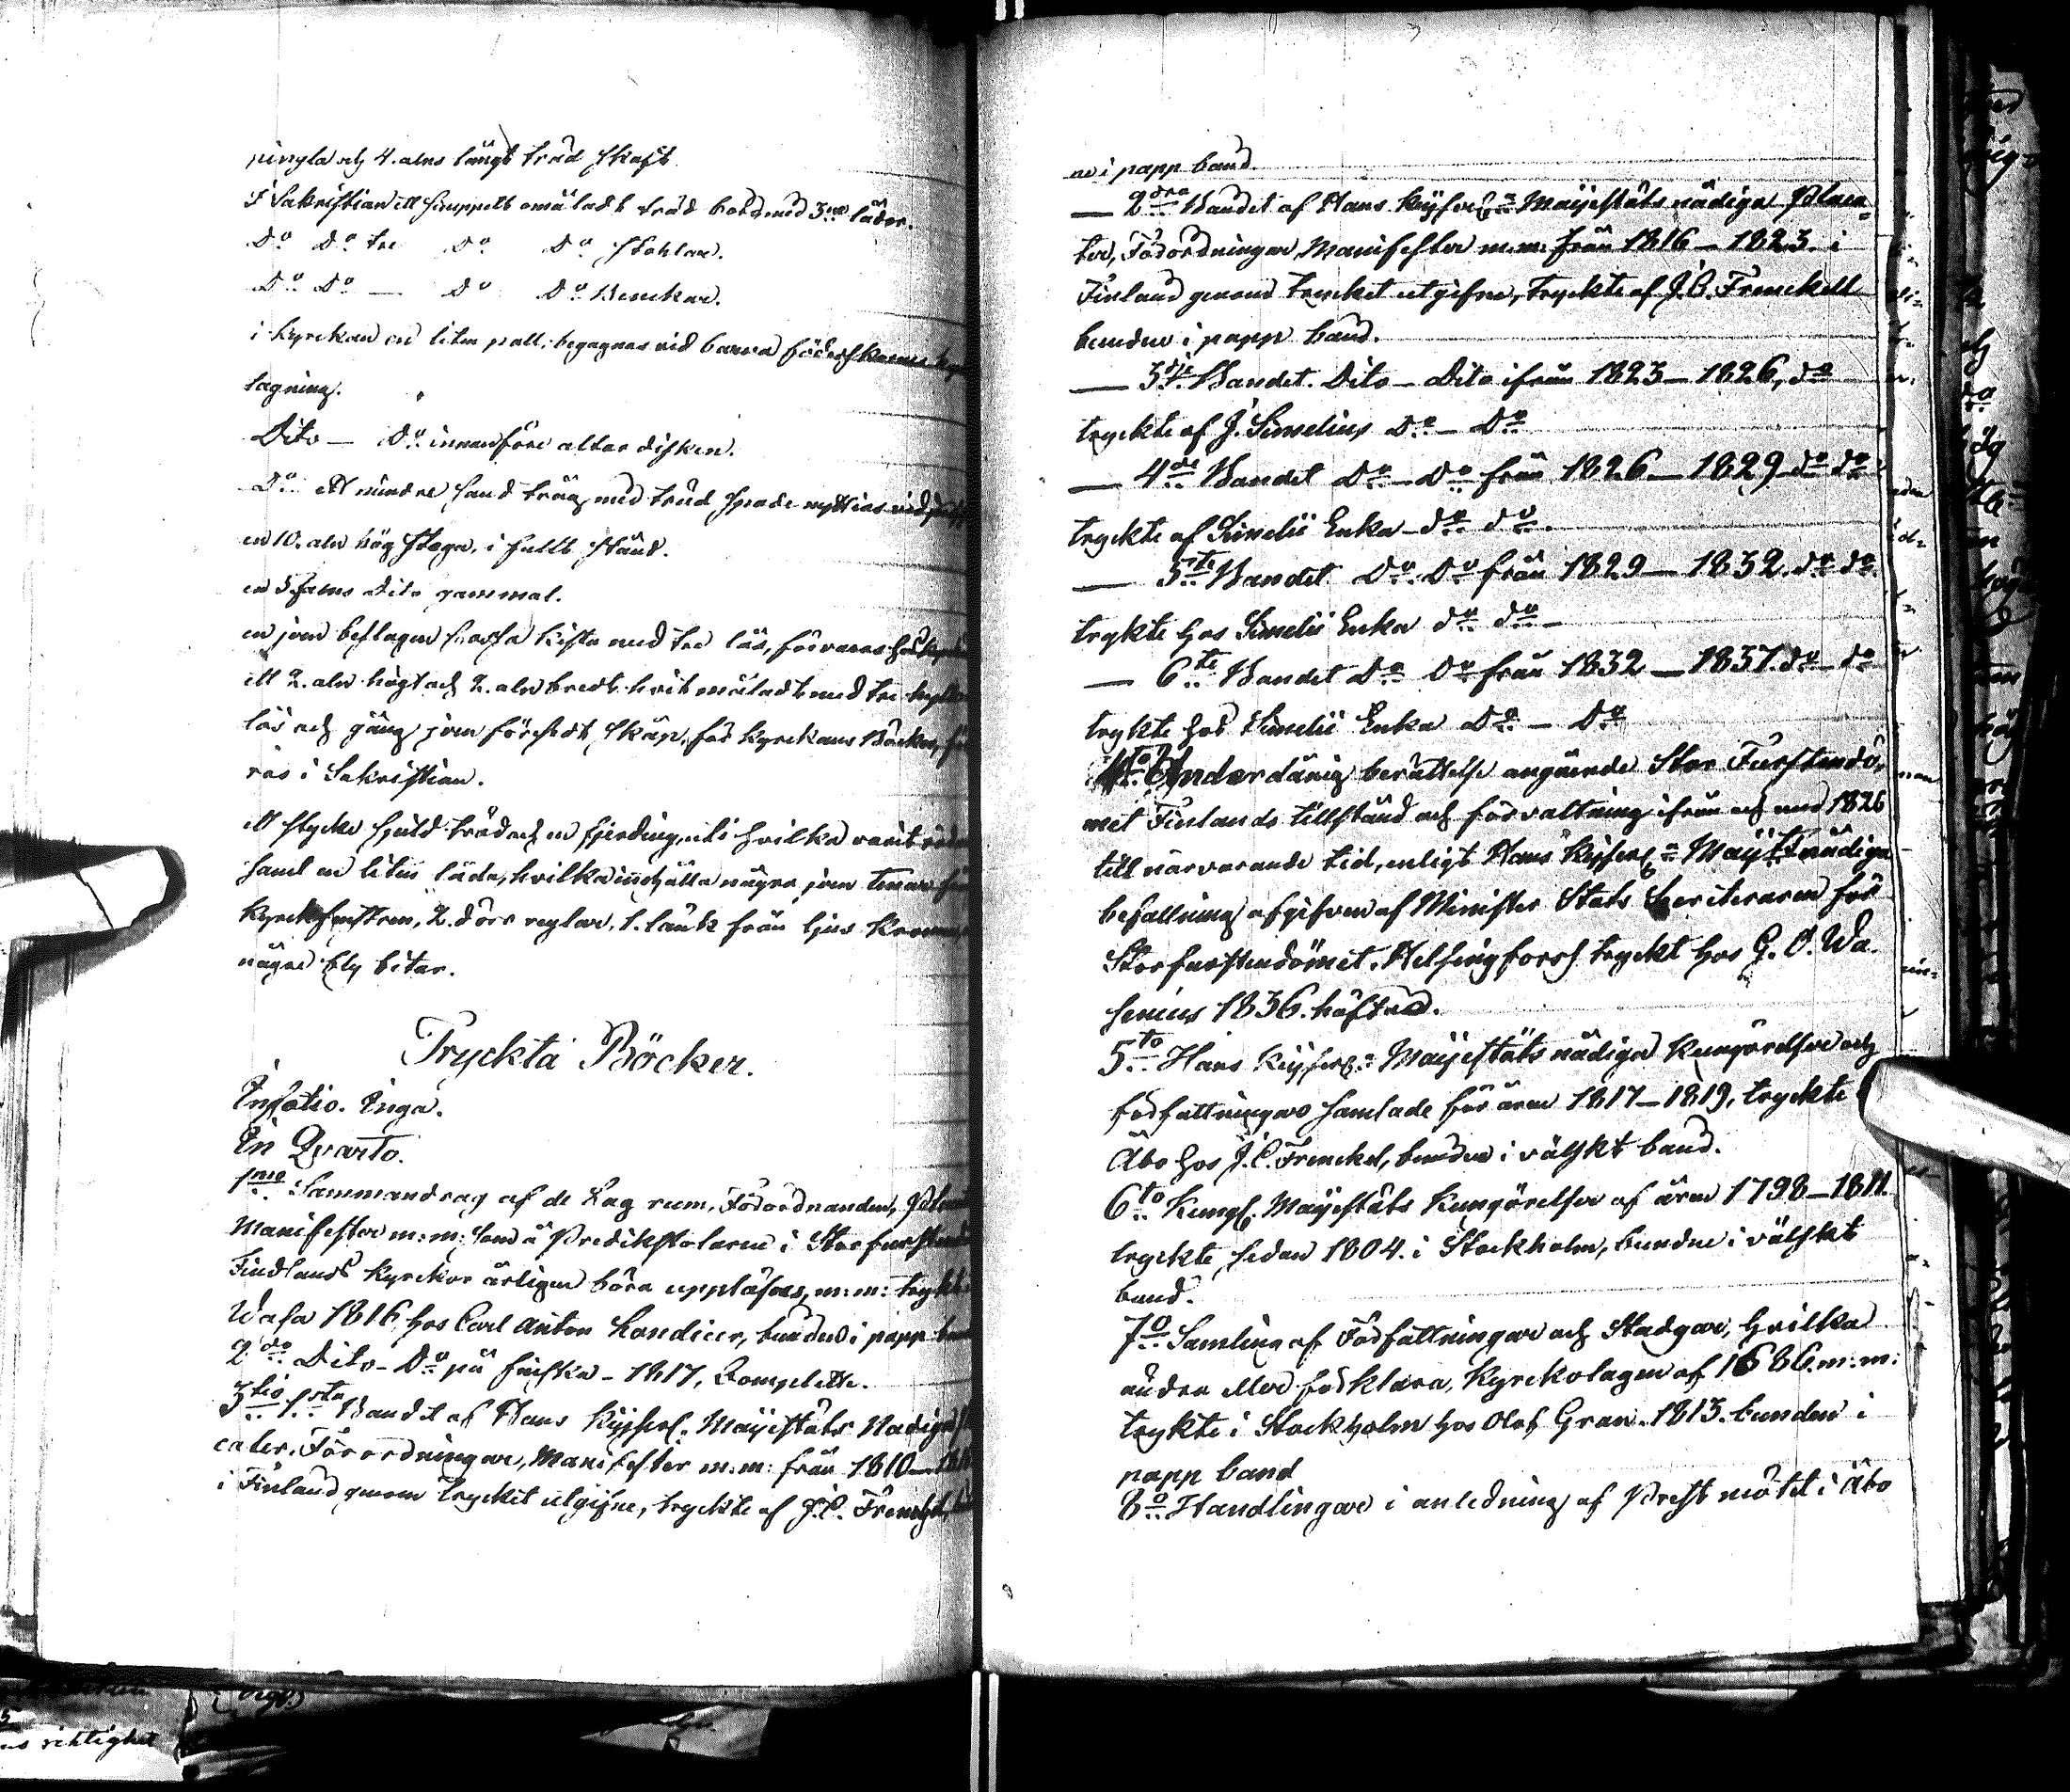 pingla och 4. alns långt träd skaft
I Sakristian ett simppelt omåladt träd bord med 3ne lådor.
Do Do tre Do Do Stohlar.
Do Do — Do Do Benckar.
i Kyrckan en liten pall, begagnas vid barna föderskarnas
tagning.
Dito — Do innanföre altar disken.
Do Ett mindre sand tråg med träd spade nyttjas vid
en 10. aln hög Stega, i fullt stånd.
en 3 famns Dito gammal.
en jern beslagen kista med tre lås, förvaras hos
ett 2. aln högt och 2. aln bredt hvit måladt med tre
lås och gång jern försedt skåp, för Kyrckans Böcker,
ras i Sakristian.
ett stycke spuld träd och en fjerding, uti hvilka varit
samt en liten låda, hvilka innehålla några jern
Kyrckfenstren, 2. dörr reglar, 1. länk från ljus Kronan
några bly bitar.
Tryckta Böcker.
In folio. Inga.
In Qvarto.
1mo Sammandrag af de Lag rum, Förordnanden,
Manifester m:m: som å Predikstolarne i Storfursten
Findlands Kyrckor årligen böra uppläsas, m:m: tryckt
Wasa 1816, hos Carl Anton Londicer, bunden i papp band
2do Dito – Do på finska – 1817, Complette.
3tio 1sta Bandet af Hans Kejserl. Maijestäts Nådiga
cater, Förordningar, Manifester m:m: från 1810—
i Finland genom trycket utgifne, tryckte af J. C. Frenckel,
ne i papp band.
— 2dra Bandet af Hans Kejserl= Maijestäts nådiga Placa=
ter, Förordningar, Manifester m.m. från 1816—1823. i
Finland genom trycket utgifne, tryckte af J. C. Frenckell
bunden i papp band.
— 3dje Bandet. Dito – Dito ifrån 1823—1826, do
tryckte af J. Simelius Do – Do
— 4de Bandet Do – Do från 1826—1829 do do
tryckte af Simelii Enka – do do.
— 5te Bandet Do Do från 1829—1832. do do.
tryckte hos Simelii Enka do do –
— 6te Bandet Do Do från 1832—1837. do – do
tryckte hos Simelii Enka Do – Do
4to Underdånig berättelse angående Stor Furstendö,
met Finlands tillstånd och förvaltning ifrån och med 1826
till närvarande tid, enligt Hans Kejserl= Maijts nådiga
befallning afgifven af Minister Stats Secreteraren för
Storfurstendömet. Helsingfors tryckt hos G. O. Wa.
senius 1836. häftad.
5to Hans Kejserl= Maijestäts nådiga Kungörelser och
författningar samlade för åren 1817—1819, tryckte i
Åbo hos J. C. Frenckel, bunden i välskt band.
6to Kungl. Maijestäts Kungörelser af åren 1798—1811.
tryckte sedan 1804. i Stockholm, bundne i välskt
band.
7o Samling af Författningar och Stadgar, hvilka
ändra eller förklara, Kyrckolagen af 1686. m:m:
tryckte i Stockholm hos Olof Gran. 1813. bunden i
papp band
8o Handlingar i anledning af Prest mötet i Åbo